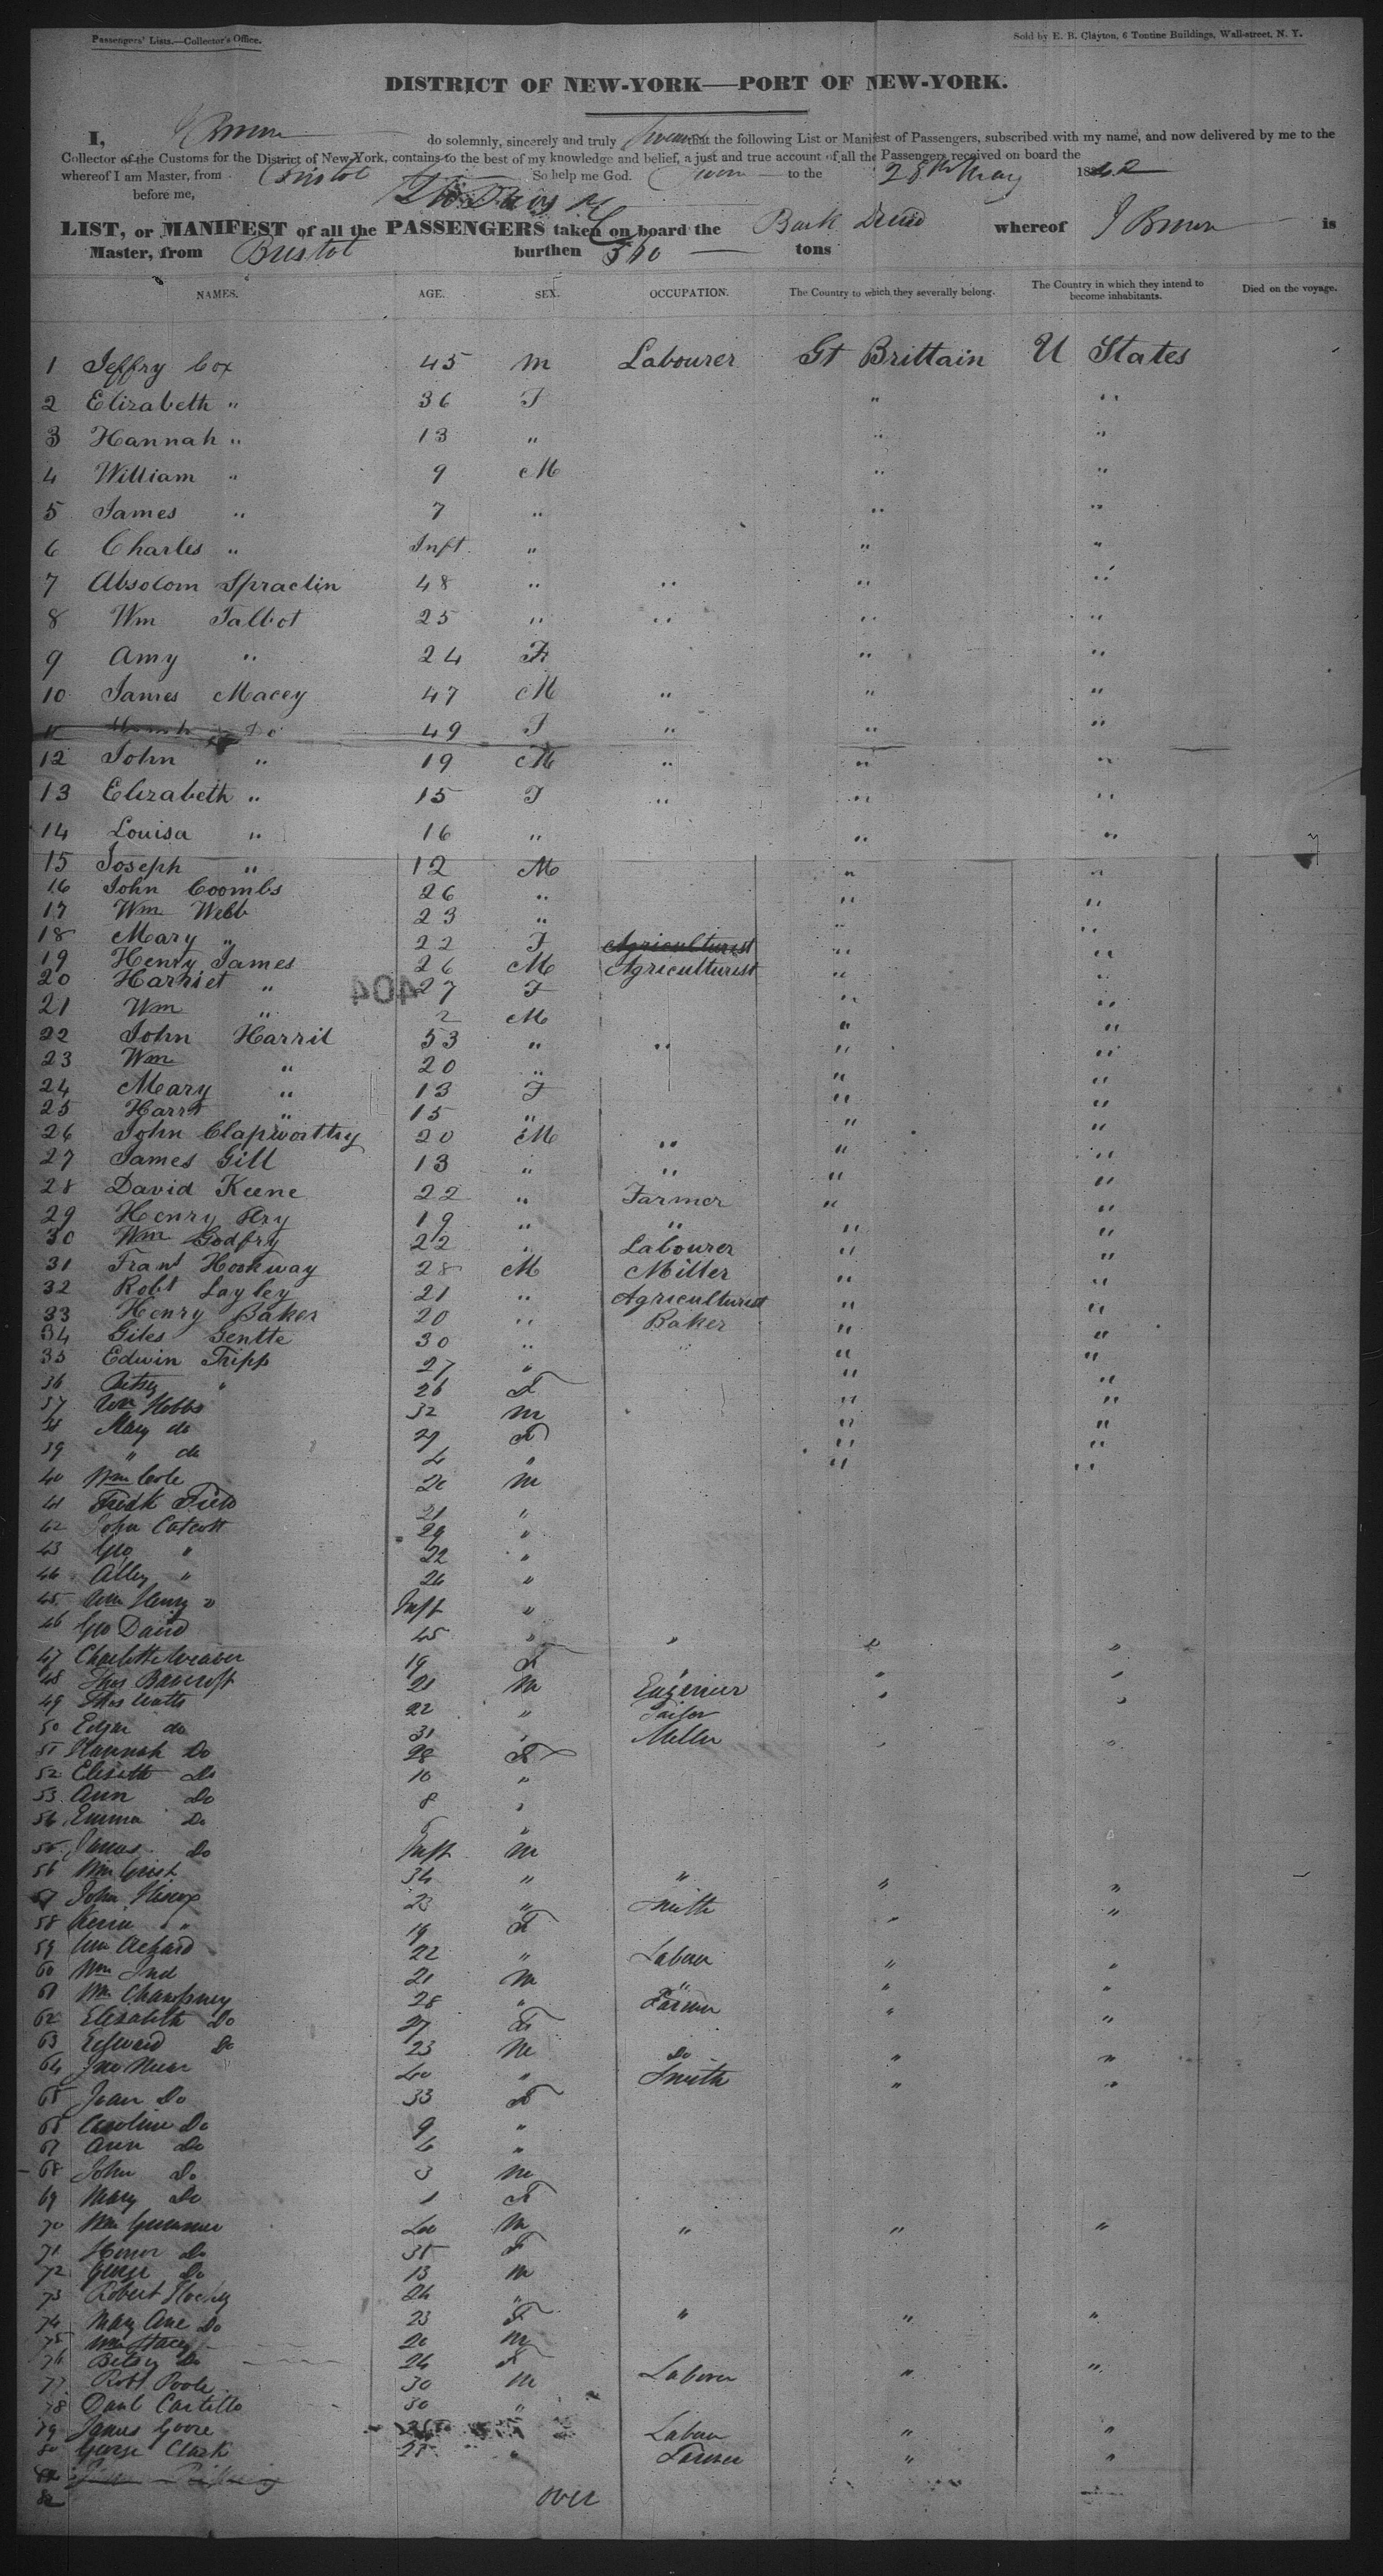 Passengers' Lists.—Collector's Office.
Sold by E. B. Clayton, 6 Tontine Buildings, Wall-street, N. Y.
DISTRICT OF NEW-YORK—PORT OF NEW-YORK.
I, J Brown do solemnly, sincerely and truly swear that the following List or Manifest of Passengers, subscribed with my name, and now delivered by me to the
Collector of the Customs for the District of New York, contains to the best of my knowledge and belief, a just and true account of all the Passengers received on board the
whereof I am Master, from Bristol So help me God. Sworn to the 28th May 1842
before me,
LIST, or MANIFEST of all the PASSENGERS taken on board the Bark Druid whereof J Brown is
Master, from Bristol burthen tons
NAMES. AGE. SEX. OCCUPATION. The Country to which they severally belong. The Country in which they intend to become inhabitants. Died on the voyage.
1 Jeffry Cox 45 M Labourer Gt Brittain U States
2 Elizabeth " 36 F " "
3 Hannah " 13 " " "
4 William " 9 M " "
5 James " 7 " " "
6 Charles " Inft " " "
7 Absolom Spraclin 48 " " " "
8 Wm Talbot 25 " " " "
9 Amy " 24 F " "
10 James Macey 47 M " " "
11 Do 49 F " " "
12 John " 19 M " " "
13 Elizabeth " 15 F " " "
14 Louisa " 16 " " "
15 Joseph " 12 M " "
16 John Coombs 26 " " "
17 Wm Webb 23 " " "
18 Mary " 22 F Agriculturist " "
19 Henry James 26 M Agriculturist " "
20 Harriet " 27 F " "
404
21 Wm " 2 M " "
22 John Harril 53 " " " "
23 Wm " 20 " " "
24 Mary " 13 F " "
25 Harrt " 15 " " "
26 John Clapworthy 20 M " " "
27 James Gill 13 " " " "
28 David Keene 22 " Farmer " "
29 Henry Ary 19 " " " "
30 Wm Godfry 22 " Labourer " "
31 Frans Hookway 28 M Miller " "
32 Robt Layley 21 " Agriculturist " "
33 Henry Baker 20 " Baker " "
34 Giles Gentle 30 " " "
35 Edwin Tripp 27 " " "
36 Betsey " 26 F " "
37 Wm Hobbs 32 M " "
38 Mary do 29 F " "
39 " do 4 " " "
40 Wm Cole 20 M
41 Fredk Field 21 "
42 John Catcott 29 "
43 Geo " 22 "
44 Alley " 24 "
45 Wm Henry " Inft "
46 Geo David 45 " " " "
47 Charlotte Weaver 19 F " "
48 Thos Bancroft 21 M Engenier " "
49 Thos Watts 22 " Tailor
50 Edgar do 31 " Miller " "
51 Hannah Do 28 F
52 Elisbth Do 10 "
53 Ann Do 8 "
54 Emma Do "
55 James Do Inft M
56 Wm Grist 34 " " " "
57 John Hiscox 23 " Smith " "
58 " 19 F
59 Wm 22 " Labour " "
60 Wm Ind 21 M " " "
61 Wm Champney 28 " Farmer " "
62 Elisabeth Do 27 F
63 Edward Do 23 M Do " "
64 Jno " 40 " Smith " "
65 Joan Do 33 F
66 Caroline Do 9 "
67 Ann Do 6 "
68 John Do 3 M
69 Mary Do 1 F
70 Wm 40 M " " "
71 Honor Do 35 F
72 George Do 13 M
73 Robert 24 "
74 Mary Ane Do 23 F " " "
75 Wm Stacey 20 M
76 Betsy Do 24 F
77 Robt Poole 30 M Laborer " "
78 Danl Castello 30 "
79 James Goore 25 Labour " "
80 George Clark 25 " Farmer " "
82
over